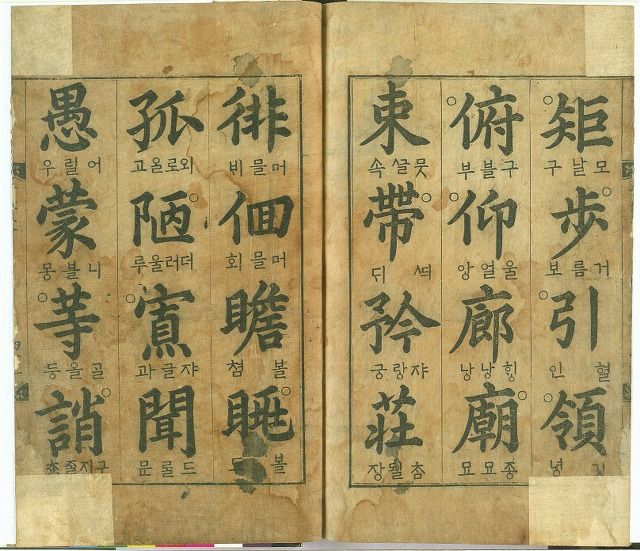 矩
모날구
步
거름보
引
혈인
領
녕
俯
구블부
仰
울얼앙
廊
낭낭
廟
종묘묘
束
뭇 속
帶
矜
쟈랑긍
莊
장
徘
머믈비
徊
머믈회
瞻
볼쳠
眺
볼
孤
로올고
陋
더러울루
寡
쟈글과
聞
드 문
愚
어릴우
蒙
니블몽
䓁
골올등
誚
구지즐쵸